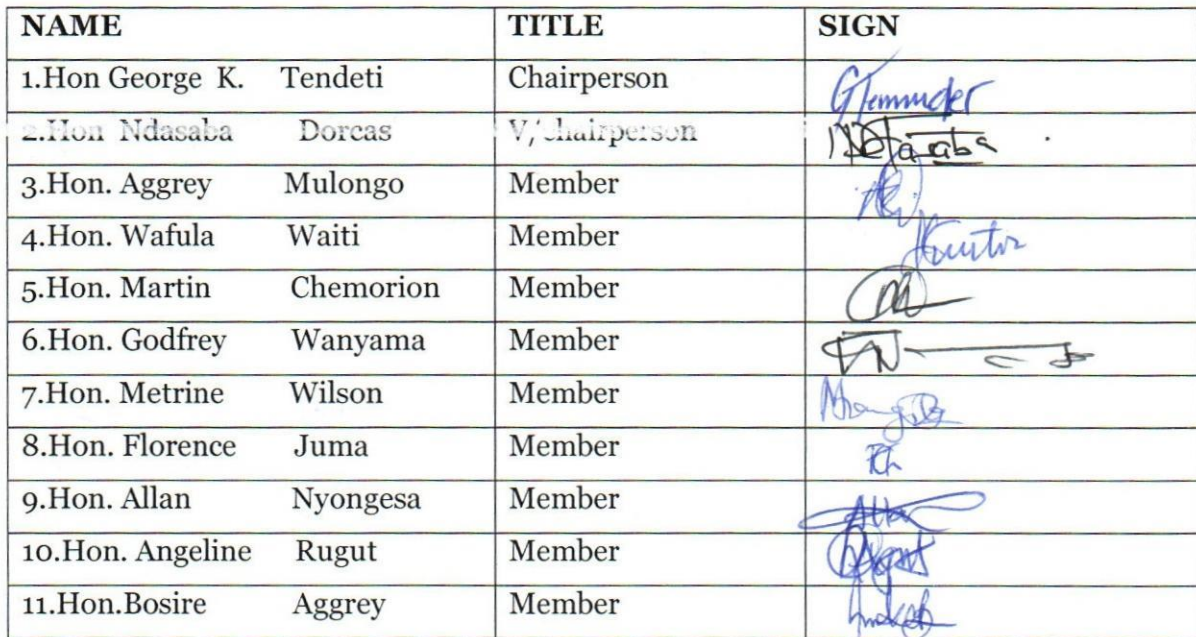 NAME TITLE SIGN
1.Hon George K. Tendeti Chairperson
2.Hon Ndasaba Dorcas V/chairperson
3.Hon. Aggrey Mulongo Member
4.Hon. Wafula Waiti Member
5.Hon. Martin Chemorion Member
6.Hon. Godfrey Wanyama Member
7.Hon. Metrine Wilson Member
8.Hon. Florence Juma Member
9.Hon. Allan Nyongesa Member
10.Hon. Angeline Rugut Member
11.Hon.Bosire Aggrey Member